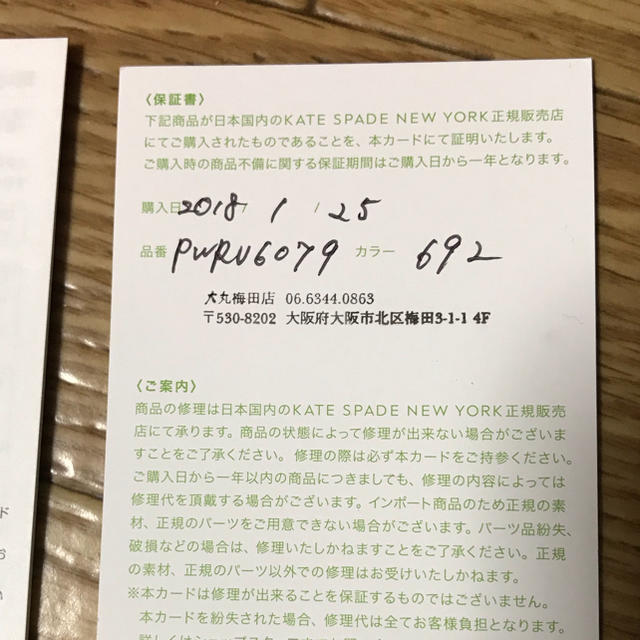 〈保証書〉
下記商品が日本国内のKATE SPADE NEW YORK正規販売店
にてご購入されたものであることを、本カードにて証明いたします。
ご購入時の商品不備に関する保証期間はご購入日から一年となります。
購入日 2018 / 1 / 25
品番 PWRU6079 カラー 692
大丸梅田店 06.6344.0863
〒530-8202 大阪府大阪市北区梅田3-1-1 4F
〈ご案内〉
商品の修理は日本国内のKATE SPADE NEW YORK正規販売
店にて承ります。商品の状態によって修理が出来ない場合がございま
すことをご了承ください。 修理の際は必ず本カードをご持参ください。
ご購入日から一年以内の商品につきましても、修理の内容によっては
修理代を頂戴する場合がございます。インポート商品のため正規の素
材、正規のパーツをご用意できない場合がございます。パーツ品紛失、
破損などの場合は、修理いたしかねますことをご了承ください。正規
の素材、正規のパーツ以外での修理はお受けいたしかねます。
※本カードは修理が出来ることを保証するものではございません。
本カードを紛失された場合、修理代は全てお客様負担となります。
ド
お
い